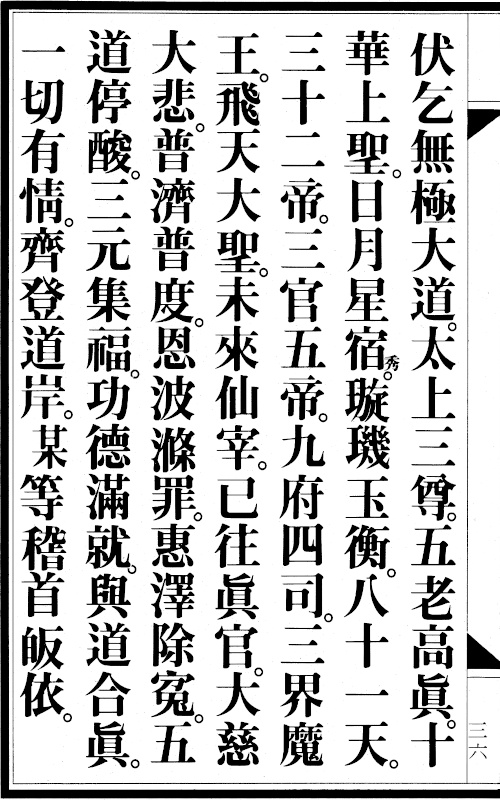 伏乞無極大道。太上三尊。五老高眞。十
華上聖。日月星宿秀。璇璣玉衡。八十一天。
三十二帝。三官五帝。九府四司。三界魔
王。飛天大聖。未來仙宰。已往眞官。大慈
大悲。普濟普度。恩波滌罪。惠澤除寃。五
道停酸。三元集福。功德滿就。與道合眞。
一切有情。齊登道岸。某等稽首皈依。
三六